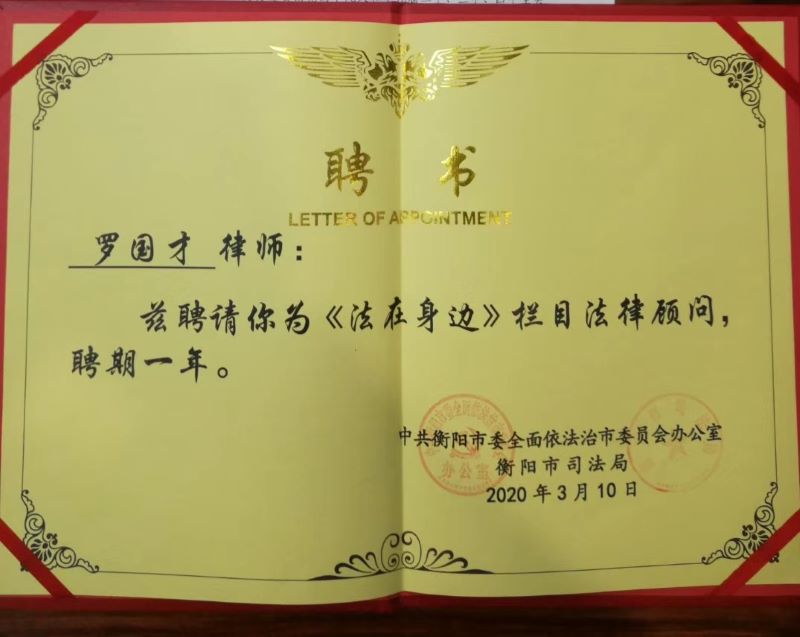 聘 书
LETTER OF APPOINTMENT
罗国才 律师：
兹聘请你为《法在身边》栏目法律顾问，
聘期一年。
中共衡阳市委全面依法治市委员会办公室
衡阳市司法局
2020年3月10日
办公室